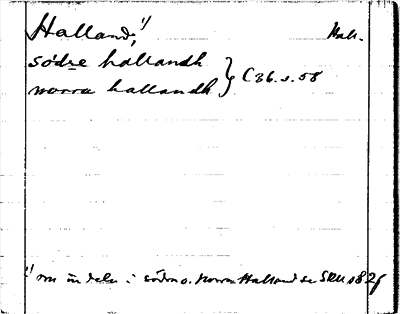 Halland, 1) Hall.
södre hallandh
norra hallandh } C 36. s. 58
1) om indeln i södra o. norra Halland se SRU s 82f